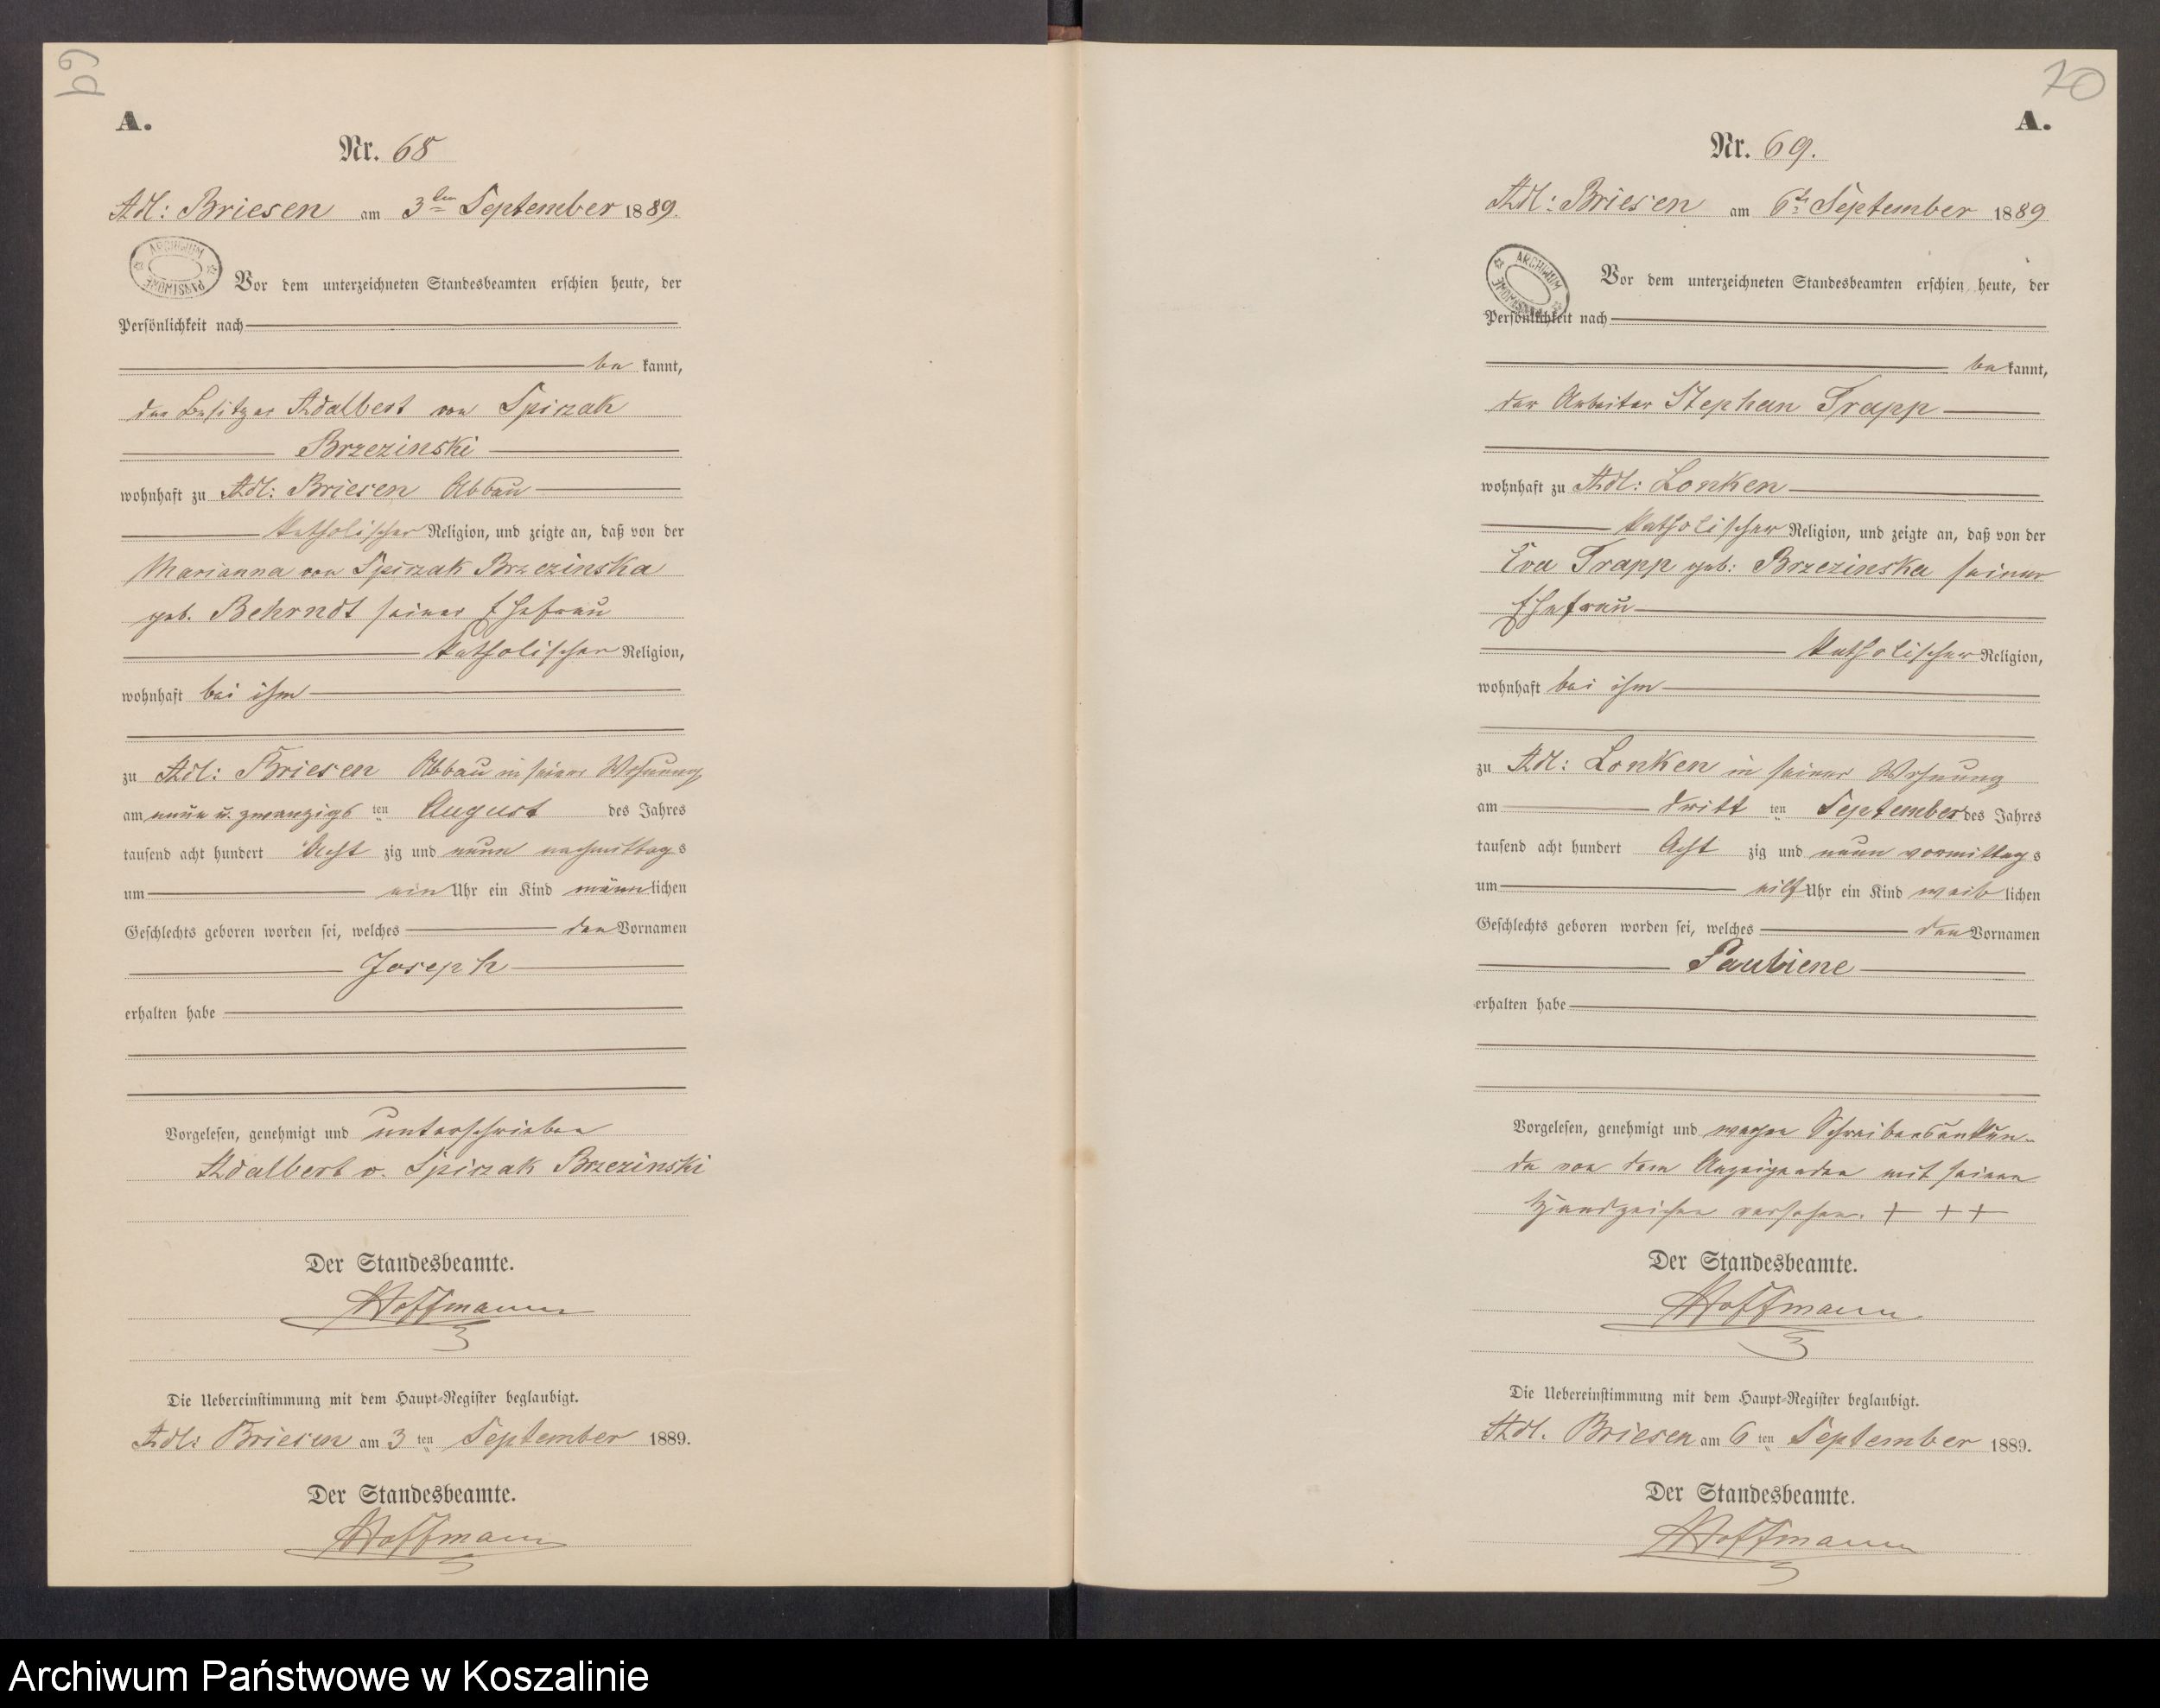 69
A.
Nr. 68
Adl: Briesen am 3ten September 1889.
ARCHIWUM PAŃSTWOWE
Vor dem unterzeichneten Standesbeamten erschien heute, der
Persönlichkeit nach
be kannt,
der Besitzer Adalbert von Spiczak
Brzezinski
wohnhaft zu Adl: Briesen Abbau
katholischer Religion, und zeigte an, daß von der
Marianna von Spiczak Brzezinska
geb. Behrndt seiner Ehefrau
katholischer Religion,
wohnhaft bei ihm
zu Adl: Briesen Abbau in seiner Wohnung
am neun u. zwanzigs ten August des Jahres
tausend acht hundert Acht zig und neun nachmittags
um ein Uhr ein Kind männlichen
Geschlechts geboren worden sei, welches den Vornamen
Joseph
erhalten habe
Vorgelesen, genehmigt und unterschrieben
Adalbert v. Spiczak Brzezinski
Der Standesbeamte.
Hoffmann
Die Uebereinstimmung mit dem Haupt-Register beglaubigt.
Adl: Briesen am 3 ten September 1889.
Der Standesbeamte.
Hoffmann
70
A.
Nr. 69.
Adl: Briesen am 6t September 1889
ARCHIWUM PAŃSTWOWE
Vor dem unterzeichneten Standesbeamten erschien heute, der
Persönlichkeit nach
be kannt,
der Arbeiter Stephan Trapp
wohnhaft zu Adl: Lonken
katholischer Religion, und zeigte an, daß von der
Eva Trapp geb: Brzezinska seiner
Ehefrau
katholischer Religion,
wohnhaft bei ihm
zu Adl: Lonken in seiner Wohnung
am dritt ten September des Jahres
tausend acht hundert Acht zig und neun vormittags
um eilf Uhr ein Kind weib lichen
Geschlechts geboren worden sei, welches den Vornamen
Pauliene
erhalten habe
Vorgelesen, genehmigt und wegen Schreibensunkun-
de von dem Anzeigenden mit seinen
Handzeichen versehen. + + +
Der Standesbeamte.
Hoffmann
Die Uebereinstimmung mit dem Haupt-Register beglaubigt.
Adl. Briesen am 6 ten September 1889.
Der Standesbeamte.
Hoffmann
Archiwum Państwowe w Koszalinie